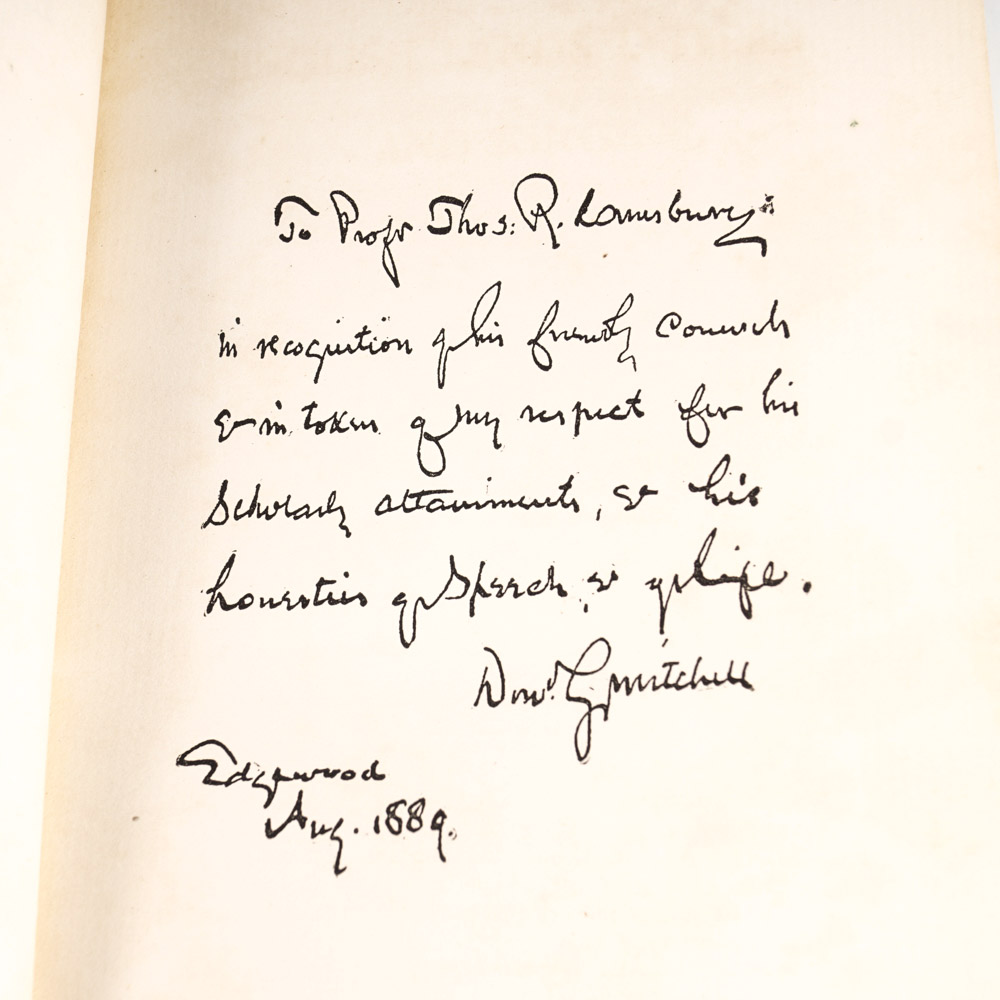 To Profr Thos: R. Lounsbury:
in recognition of his friendly counsels
& in token of my respect for his
Scholarly attainments, & his
honesties of Speech, & of life.
Dond. G. Mitchell
Edgewood
Aug. 1889.